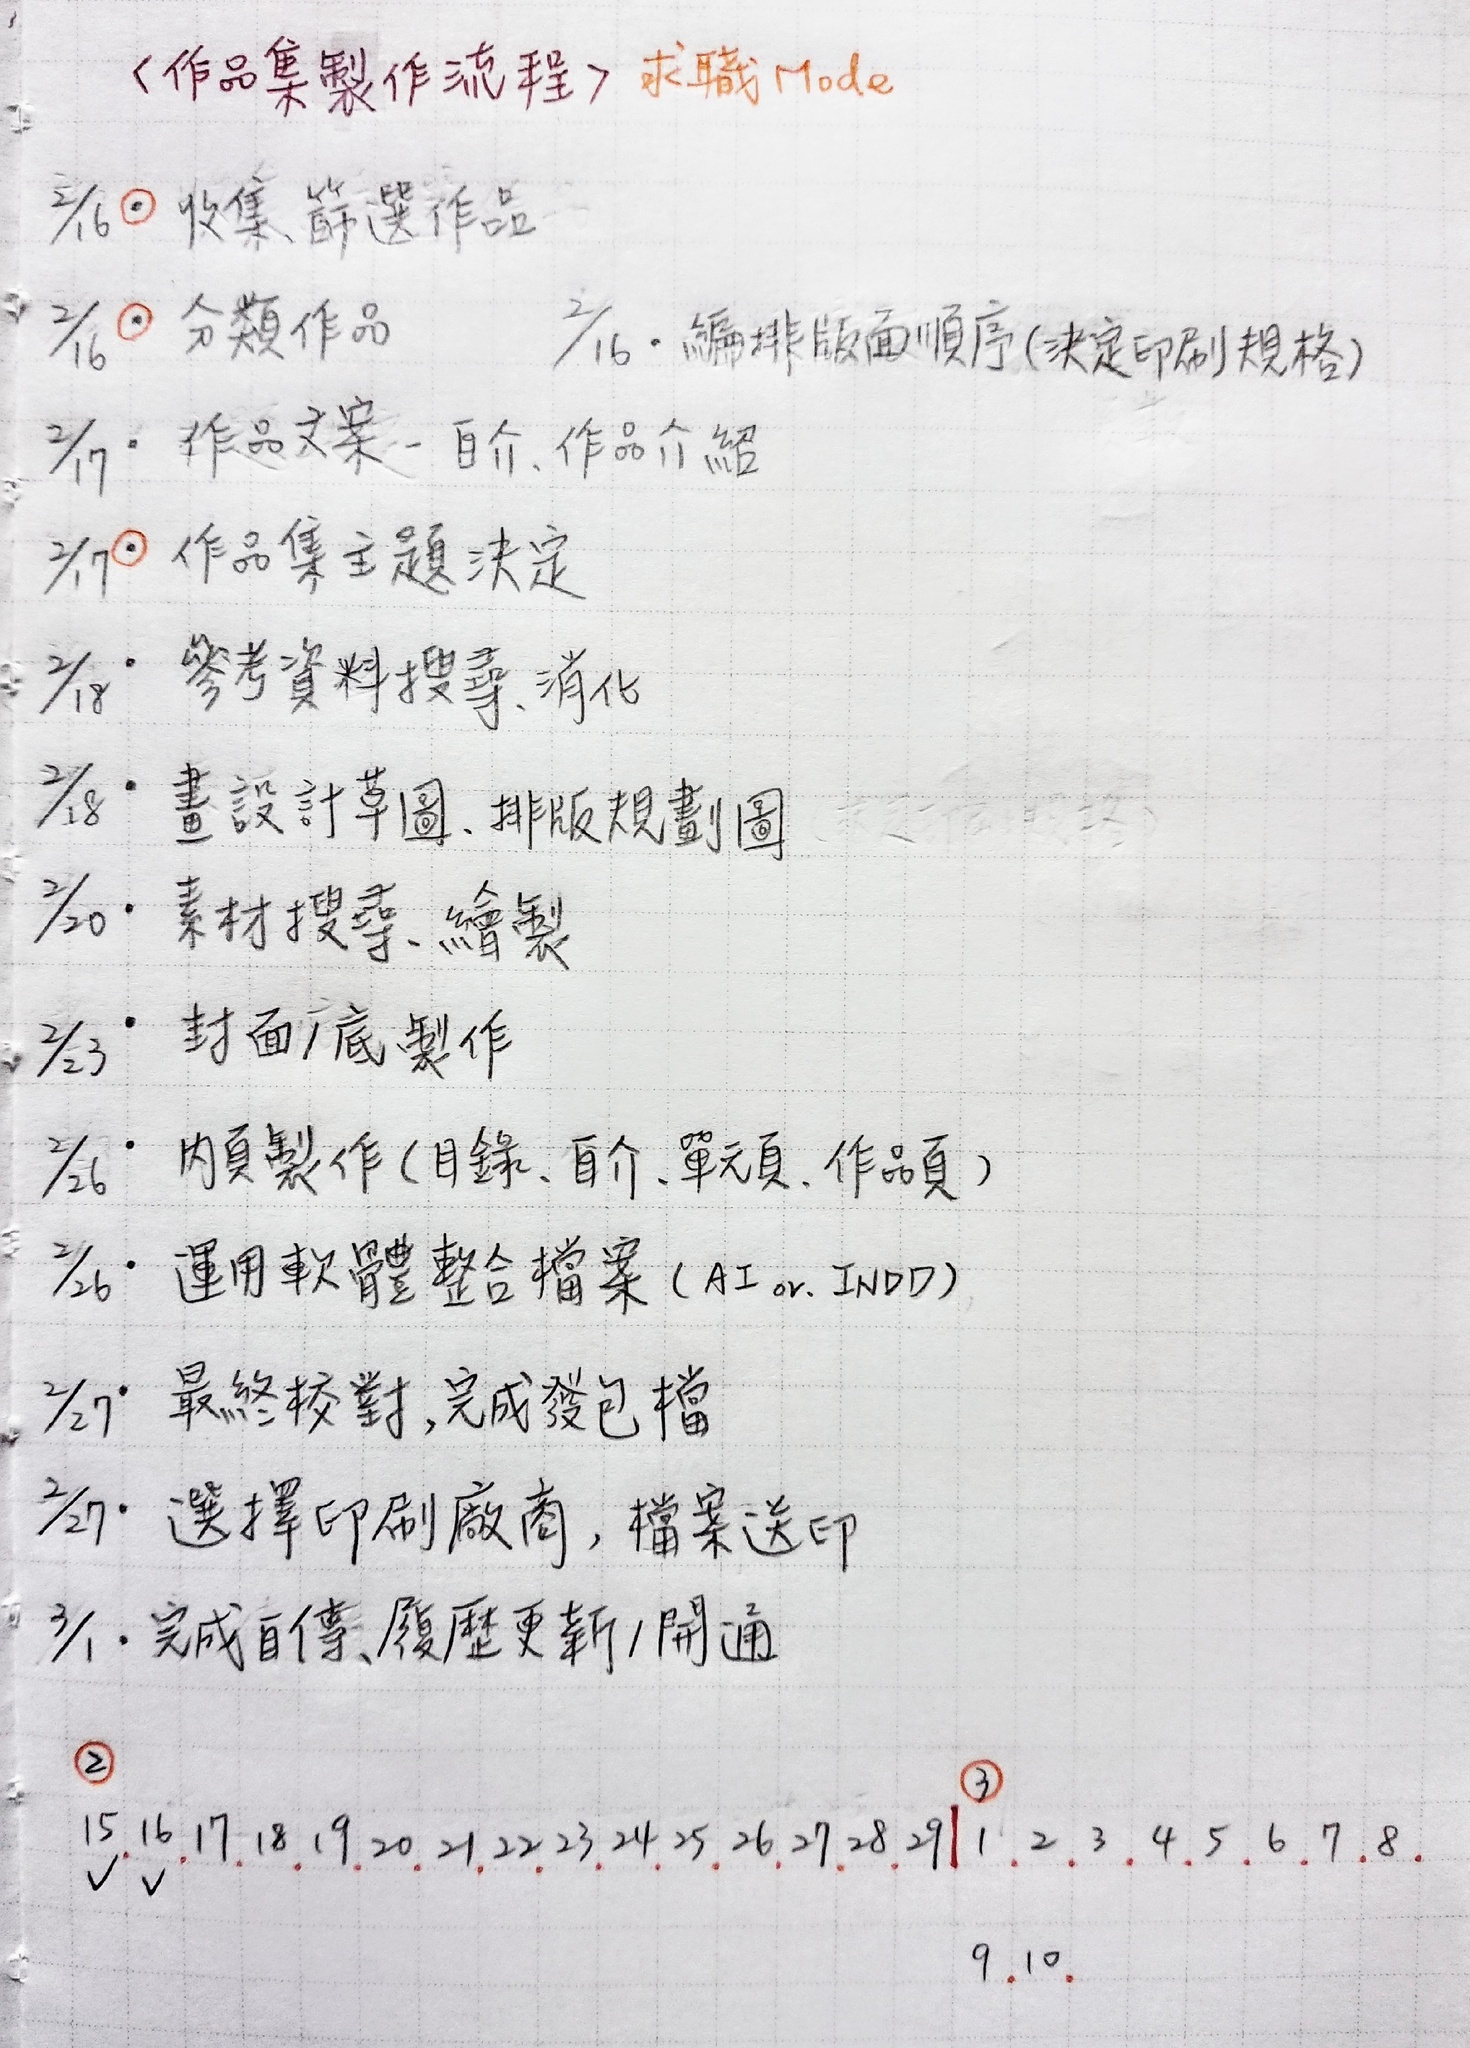 〈作品集製作流程〉求職Mode
2/16 ⊙ 收集、篩選作品
2/16 ⊙ 分類作品 2/16・編排版面順序(決定印刷規格)
2/17・作品文案-自介、作品介紹
2/17 ⊙ 作品集主題決定
2/18・參考資料搜尋、消化
2/18・畫設計草圖、排版規劃圖
2/20・素材搜尋、繪製
2/23・封面/底製作
2/26・內頁製作(目錄、自介、單元頁、作品頁)
2/26・運用軟體整合檔案(AI or. INDD)
2/27・最終校對,完成發包檔
2/27・選擇印刷廠商,檔案送印
3/1・完成自傳、履歷更新/開通
② ③
15.16.17.18.19.20.21.22.23.24.25.26.27.28.29|1.2.3.4.5.6.7.8.
✓ ✓
9.10.